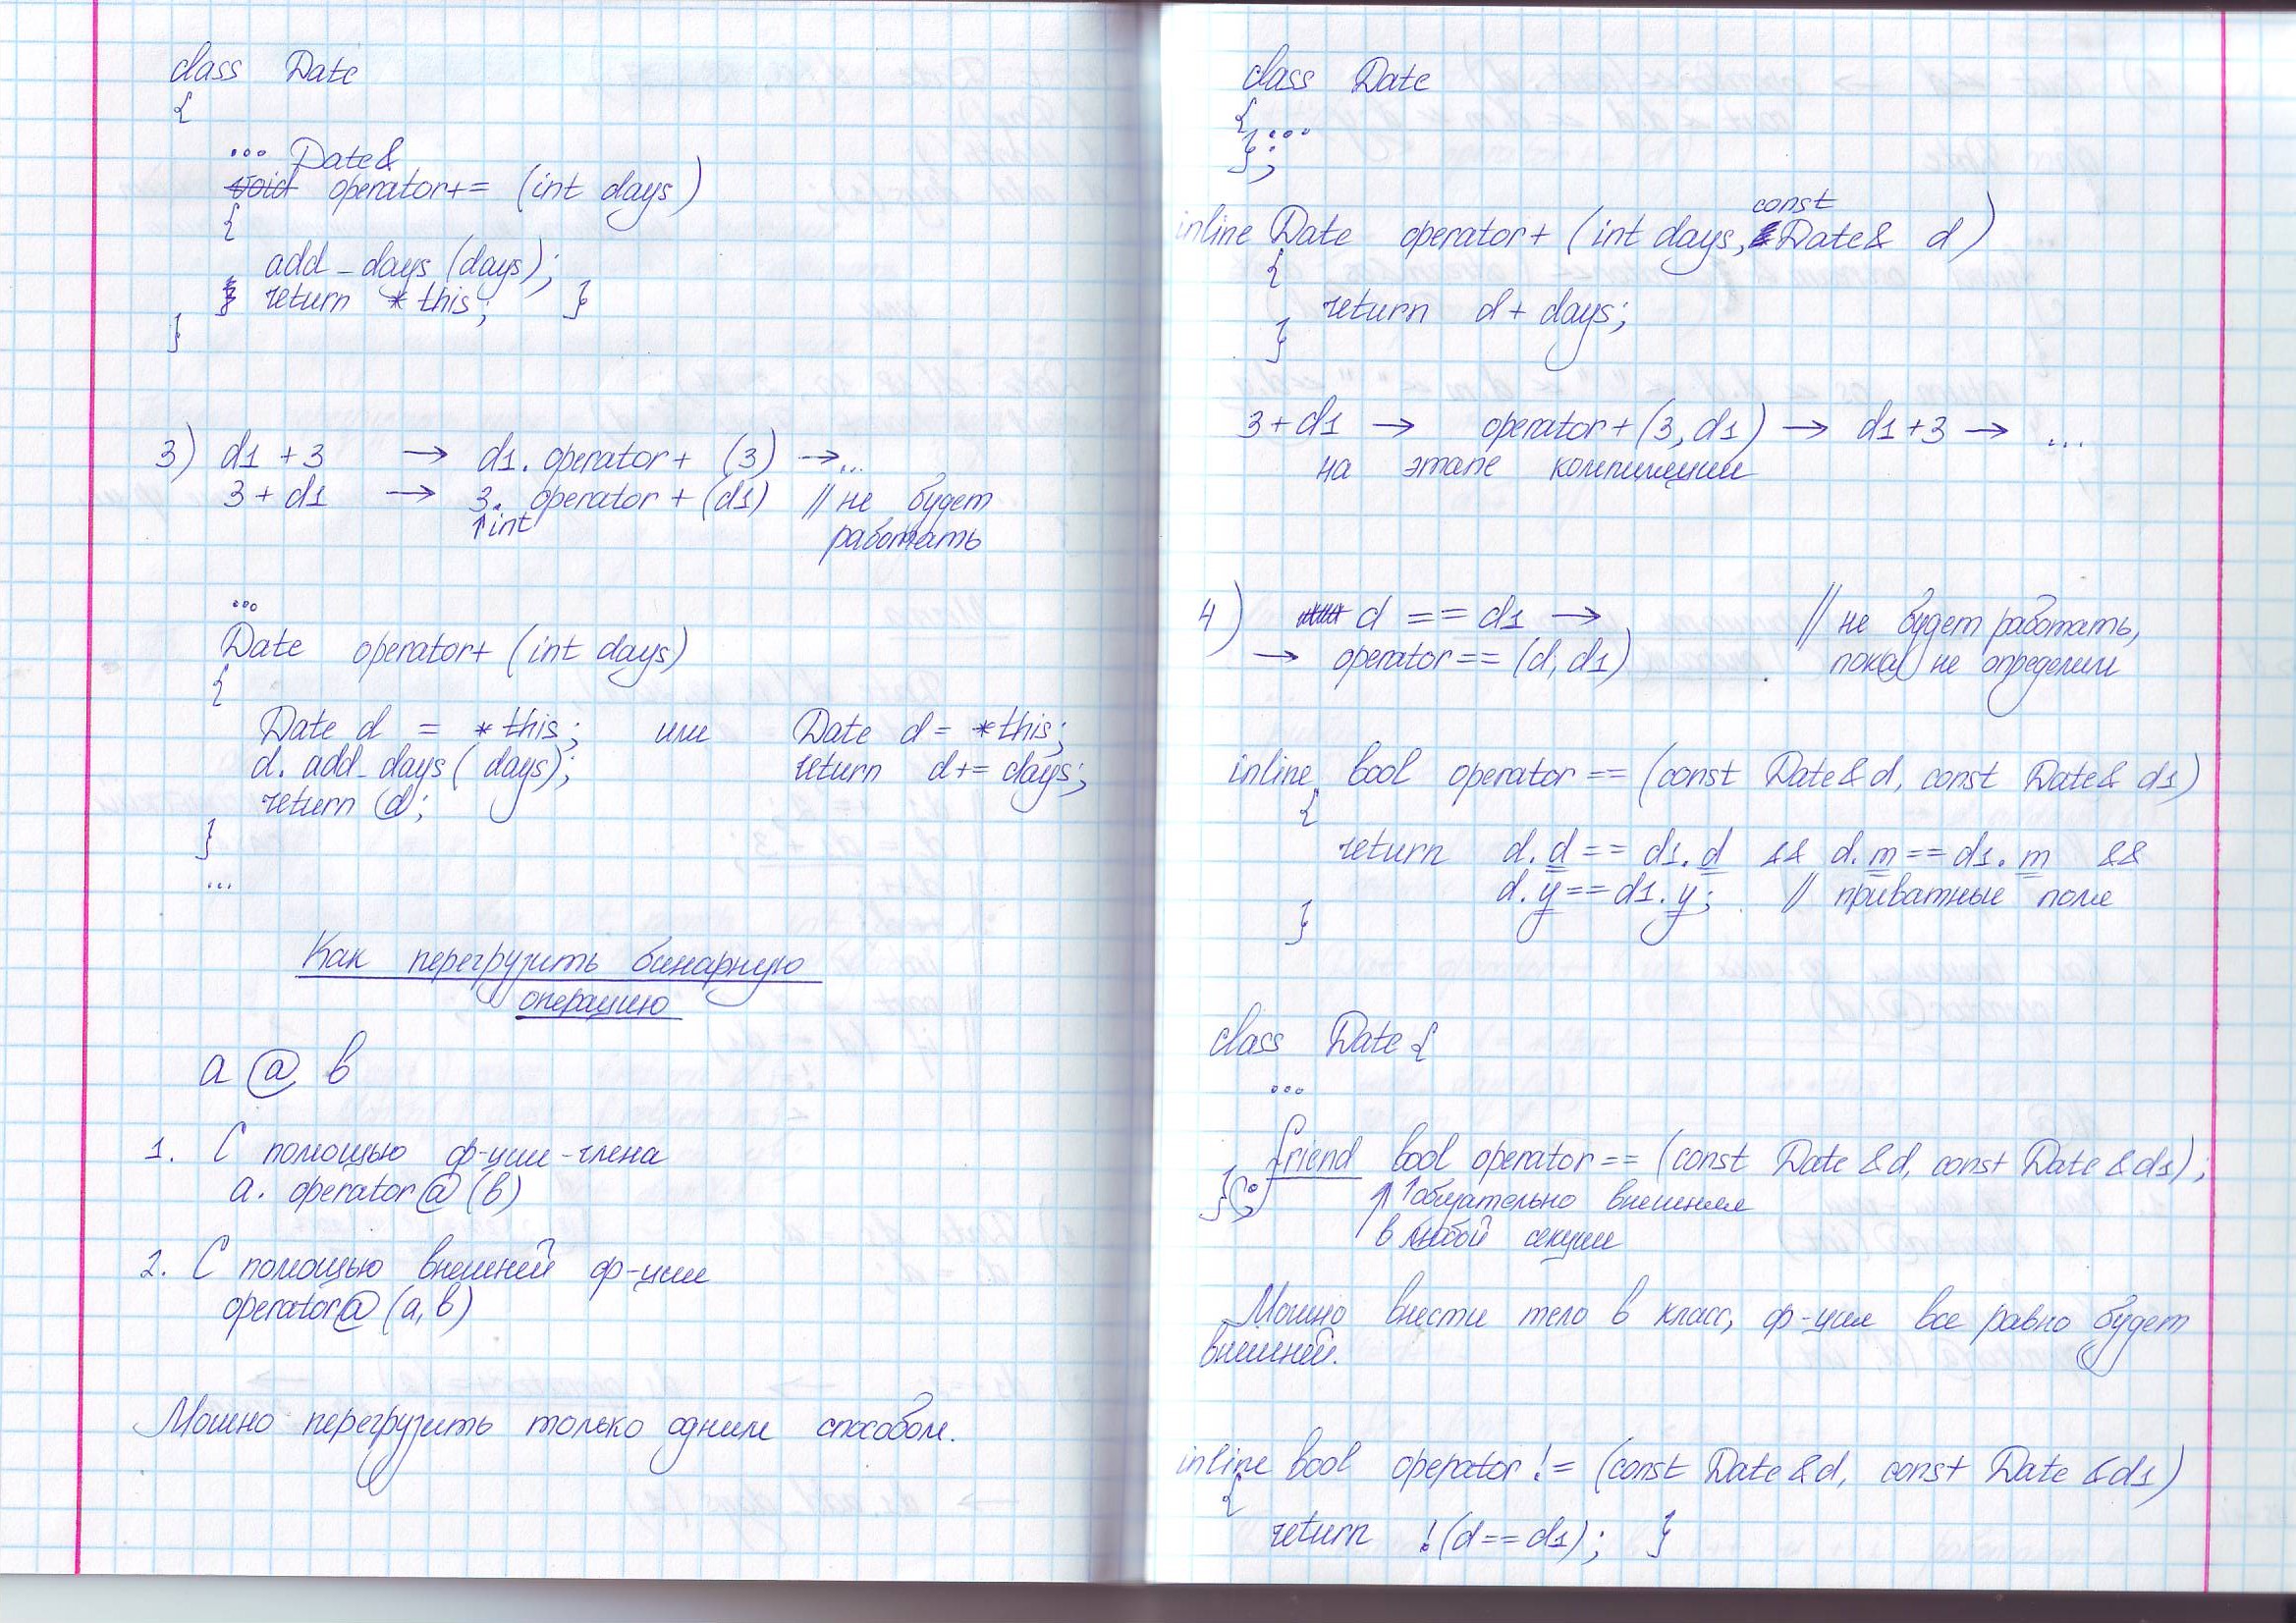 class Date
{
... Date&
void operator+= (int days)
{
add_days (days);
return *this; }
}
3) d1 + 3 → d1. operator+ (3) → ...
3 + d1 → 3. operator + (d1) // не будет
↑int работать
...
Date operator+ (int days)
{
Date d = *this; или Date d = *this;
d. add_days ( days); return d+= days;
return d;
}
...
Как перегрузить бинарную
операцию
a @ b
1. С помощью ф-ции-члена
a. operator@ (b)
2. С помощью внешней ф-ции
operator@ (a, b)
Можно перегрузить только одним способом.
class Date
{ ...
};
const
inline Date operator+ (int days, Date& d)
{
return d + days;
}
3 + d1 → operator+ (3, d1) → d1 + 3 → ...
на этапе компиляции
4) d == d1 → // не будет работать,
→ operator== (d, d1) . пока не определим
inline bool operator == (const Date& d, const Date& d1)
{
return d. d == d1. d && d. m == d1. m &&
d. y == d1. y; // приватные поля
}
class Date {
...
friend bool operator== (const Date &d, const Date &d1);
}; ↑ ↑ обязательно внешняя
в любой секции
Можно внести тело в класс, ф-ция все равно будет
внешней.
inline bool operator != (const Date &d, const Date &d1)
{
return !(d == d1); }